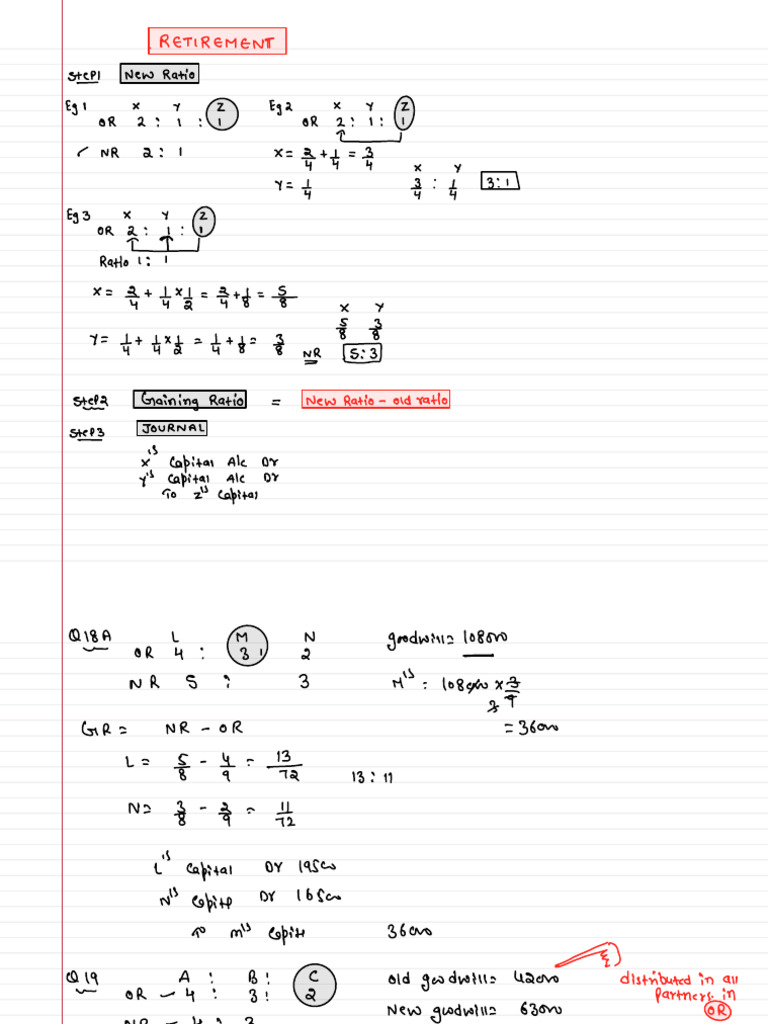 RETIREMENT
Step1 New Ratio
Eg 1 X Y Z
OR 2 : 1 : 1
✓ NR 2 : 1
Eg 2 X Y Z
OR 2 : 1 : 1
X = 2/4 + 1/4 = 3/4
Y = 1/4
X Y
3/4 : 1/4 3:1
Eg 3 X Y Z
OR 2 : 1 : 1
Ratio 1 : 1
X = 2/4 + 1/4 × 1/2 = 2/4 + 1/8 = 5/8
Y = 1/4 + 1/4 × 1/2 = 1/4 + 1/8 = 3/8
X Y
5/8 3/8
NR 5:3
Step2 Gaining Ratio = New Ratio - old ratio
Step3 JOURNAL
X's Capital A/c Dr
Y's Capital A/c Dr
To Z's Capital
Q18A L M N
OR 4 : 3 : 2
NR 5 : 3
goodwill = 108000
M's = 108000 × 3/9
= 36000
GR = NR - OR
L = 5/8 - 4/9 = 13/72
13 : 11
N = 3/8 - 2/9 = 11/72
L's Capital Dr 19500
N's Capital Dr 16500
To M's Capital 36000
Q19 A : B : C
OR - 4 : 3 : 2
NR - 4 : 3
old goodwill = 42000
New goodwill = 63000
distributed in all
partners in
OR